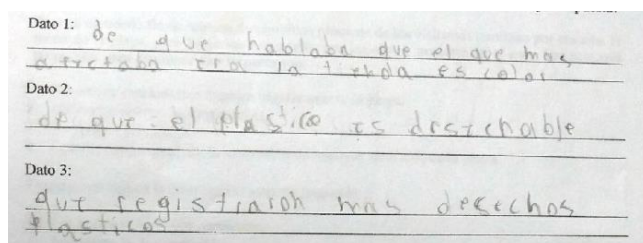 Dato 1: de que hablaba que el que mas
afectaba era la tienda escolar
Dato 2:
de que el plastico es desechable
Dato 3:
que registraron mas desechos
plasticos